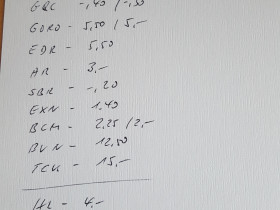 GRC - -,40 / -,50
GORO - 5,50 / 5,-
EDR - 5,50
AR - 3,-
SBR - -,20
EXN - 1,40
BCM - 2,25 / 2,-
BVN - 12,50
TCK - 15,-
HL - 4,-